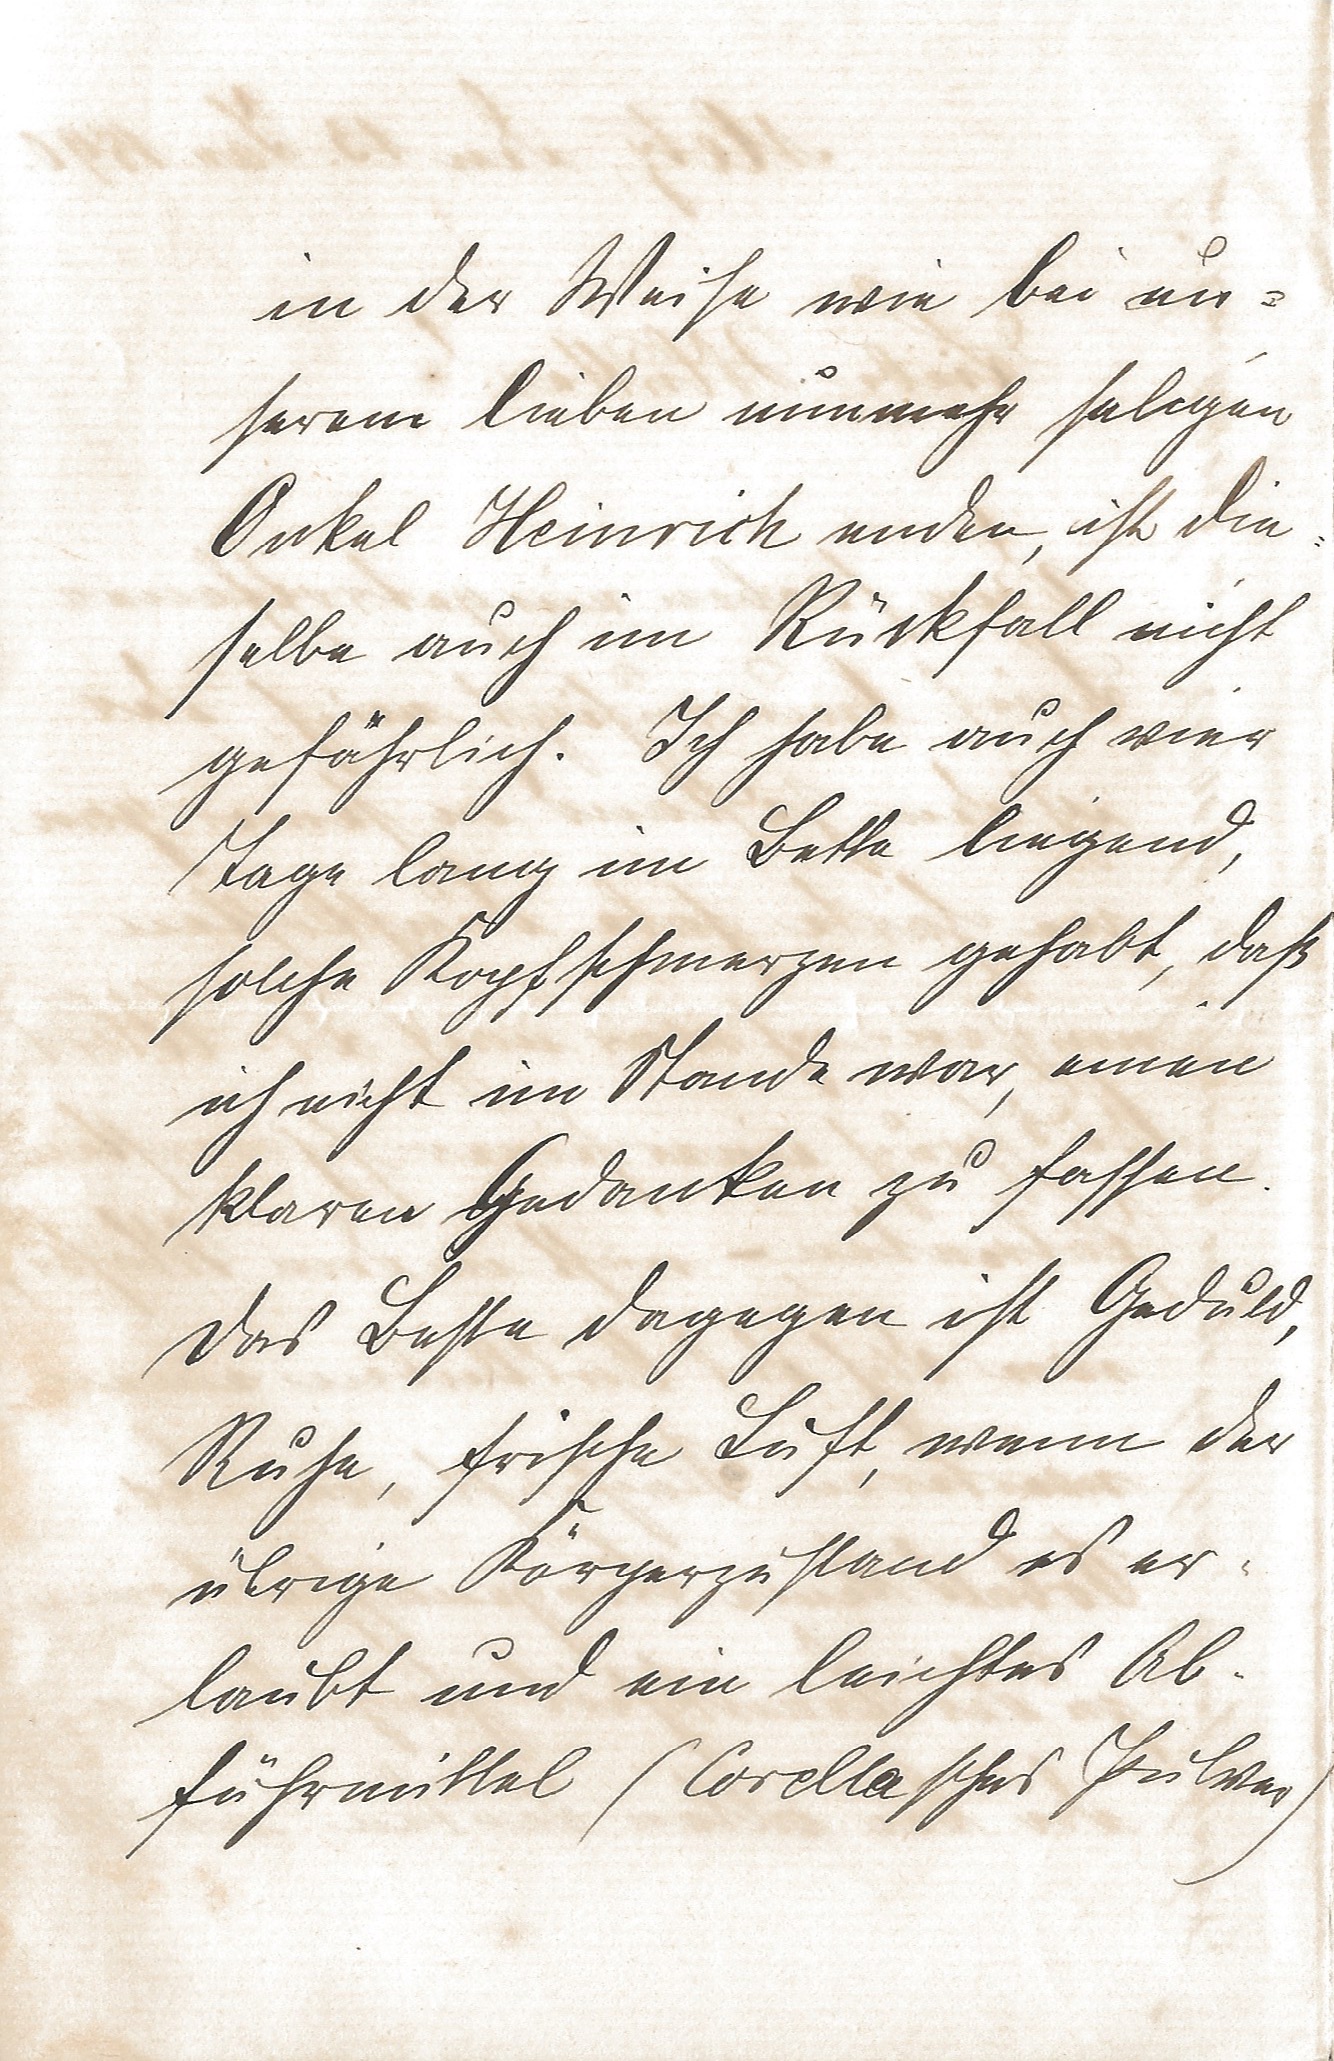 in der Weise wie bei un=
serem lieben nunmehr seligen
Onkel Heinrich enden, ist die=
selbe auch im Rückfall nicht
gefährlich. Ich habe auch vier
Tage lang im Bette liegend,
solche Kopfschmerzen gehabt, daß
ich nicht im Stande war, einen
klaren Gedanken zu fassen.
Das Beste dagegen ist Geduld,
Ruhe, frische Luft, wenn der
übrige Körperzustand es er-
laubt und ein leichtes Ab-
führmittel (Corellasches Pulver)